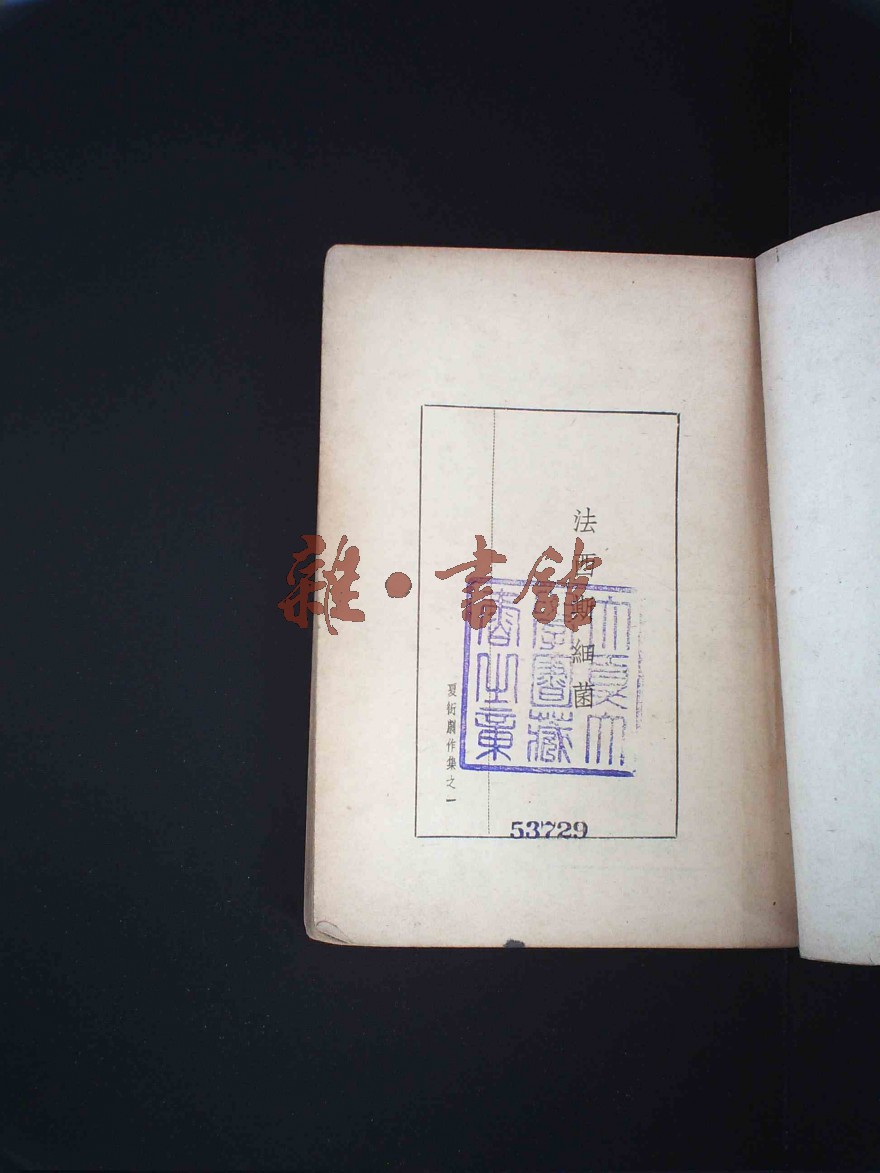 法西斯細菌
夏衍劇作集之一
大夏大
學圖書藏
書之章
53729
雜·書館